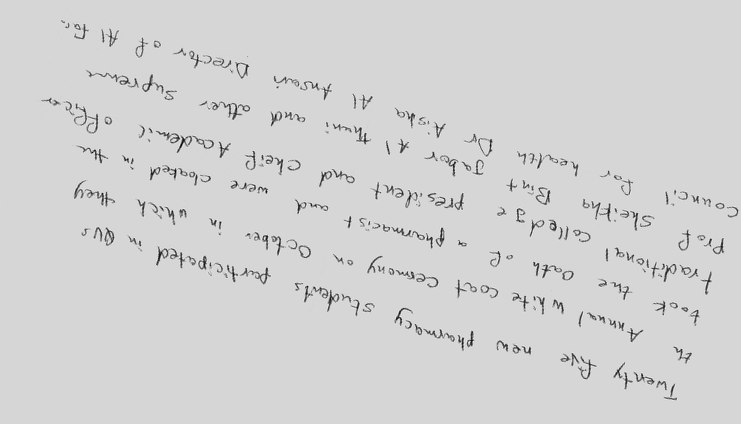 Twenty five new pharmacy students participated in QUs
th Annual White coat Cermony on October in which they
took the Oath of a pharmacist and were cloaked in the
traditional colledge president and Cheif Academic officer
Prof Sheikha Bint Jabor Al Thuni and other Supreme
Council for health Dr Aisha Al Ansari Director of Al